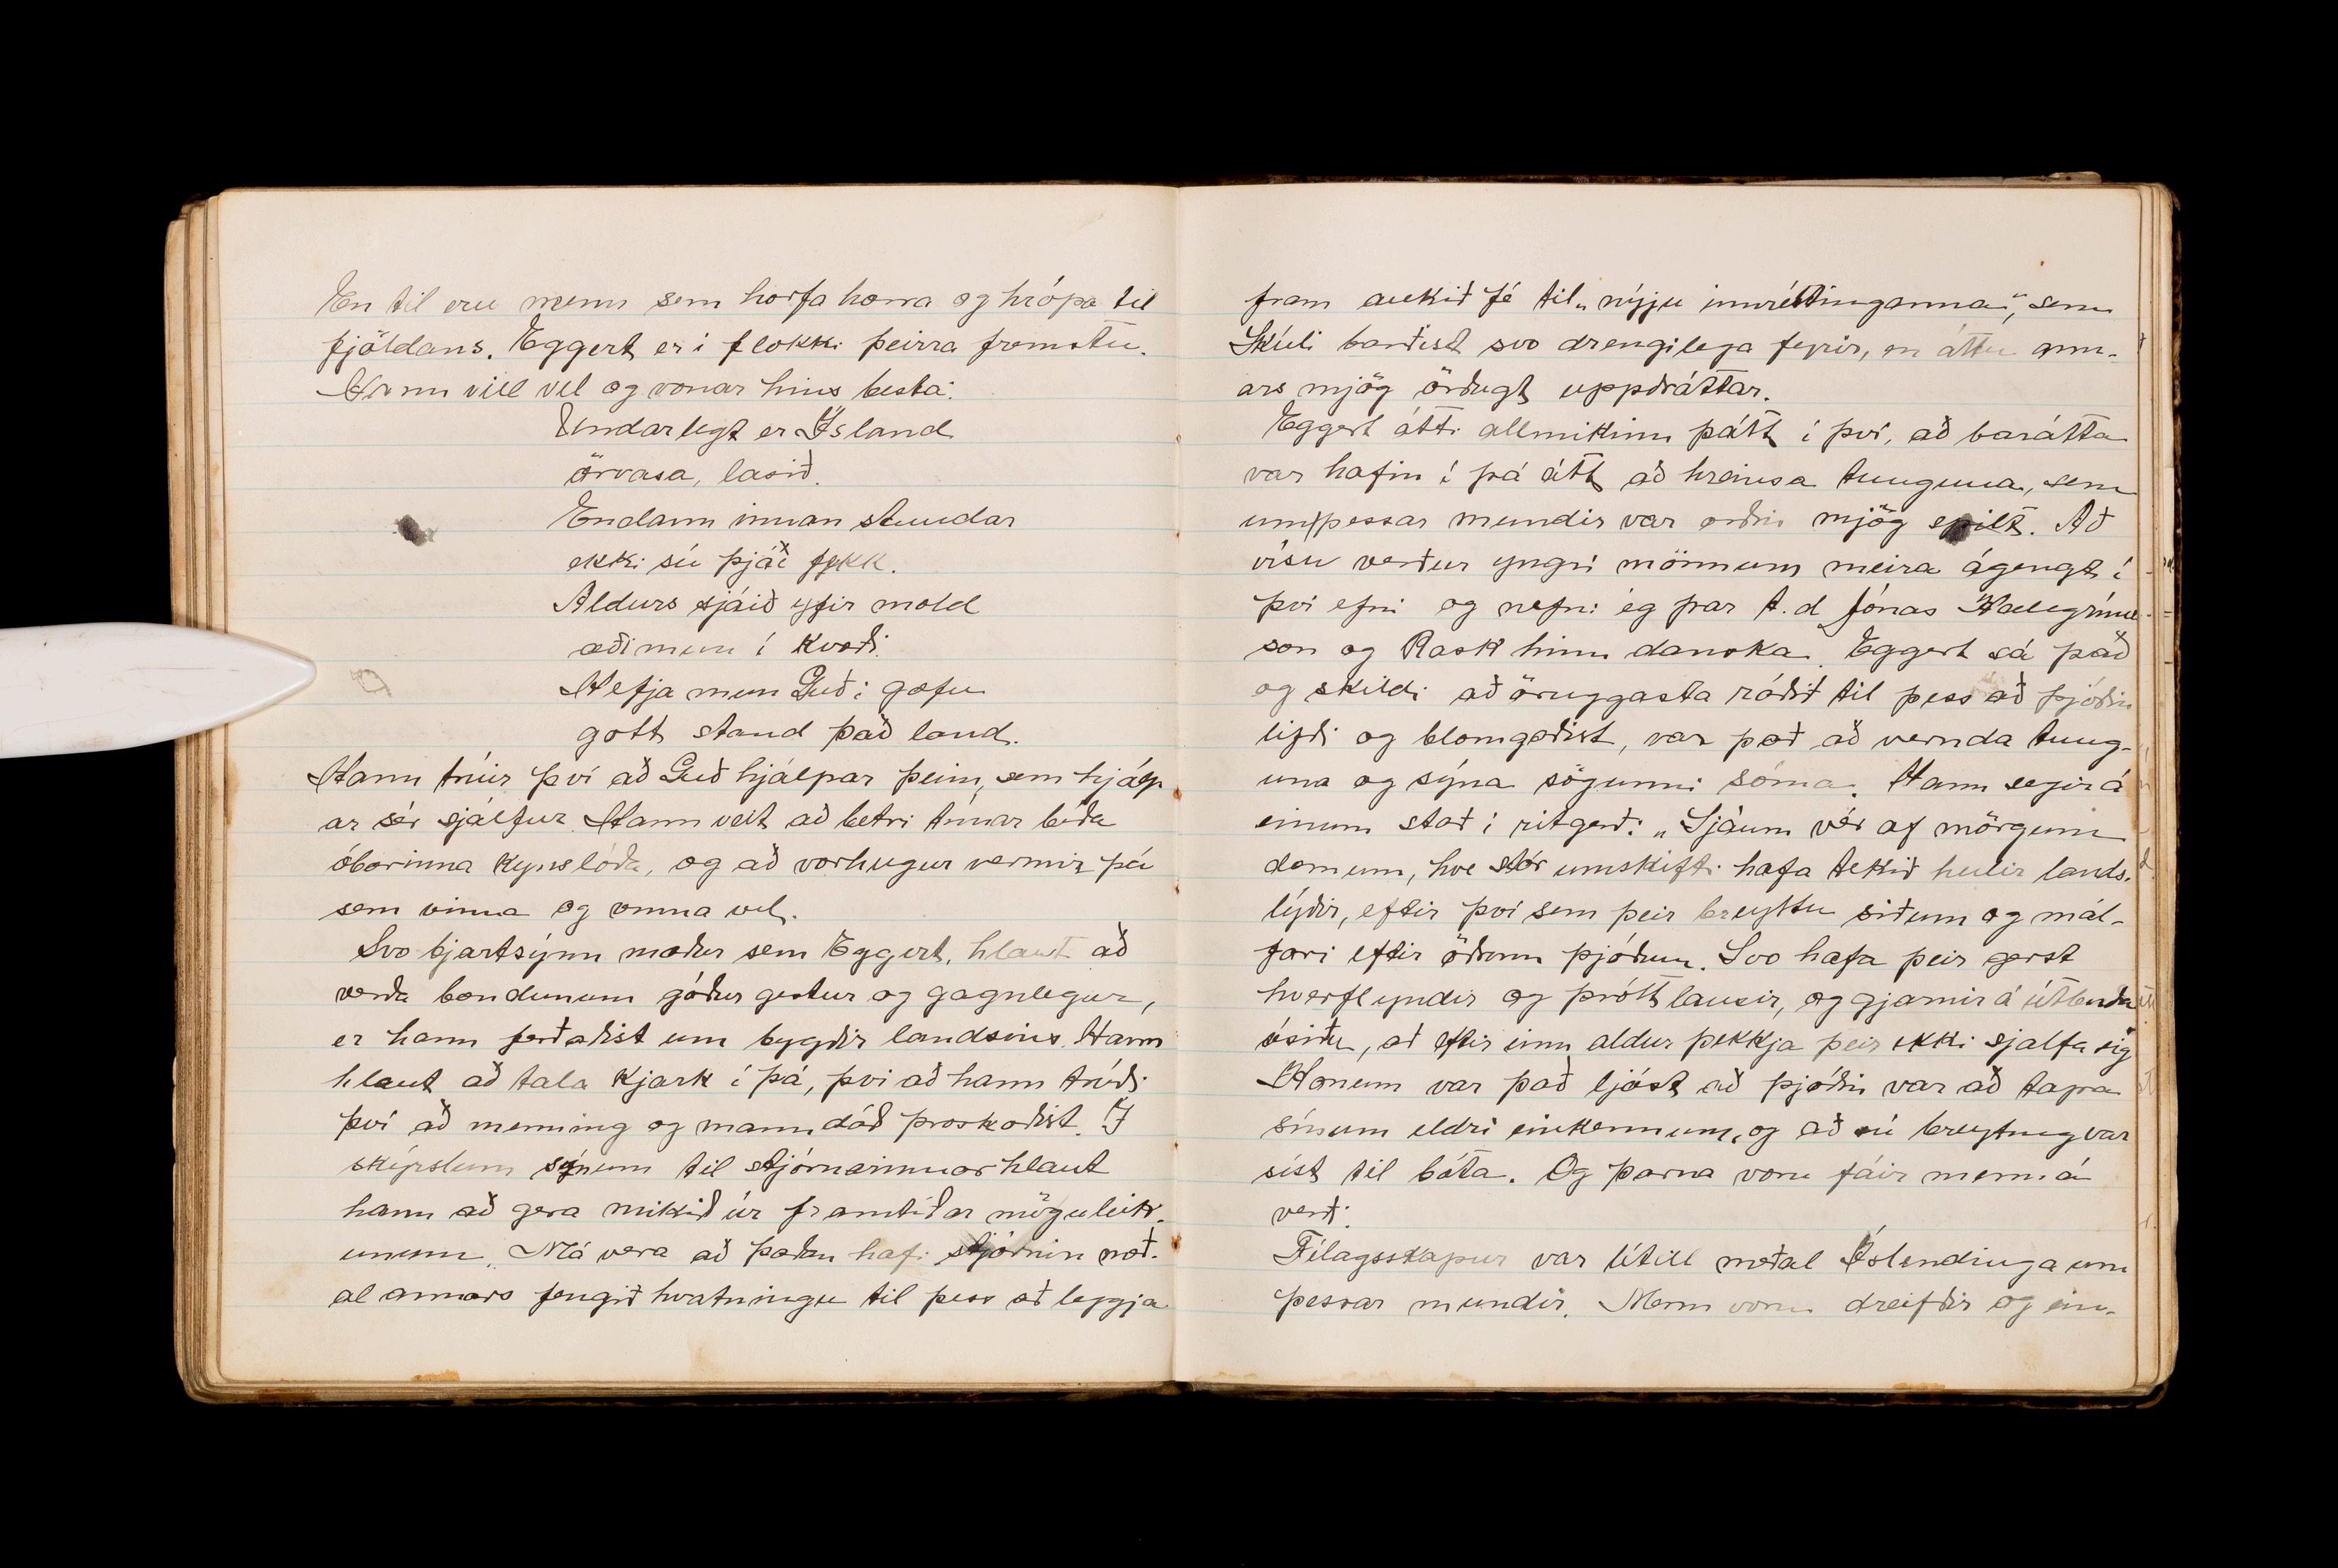 En til eru menn sem horfa hærra og hrópa til
fjöldans. Eggert er í flokki þeirra fremstu.
Hann vill vel og vonar hins besta:
Undarlegt er Ísland
örvasa, lasið.
Endann innan stundar
ekki sú þjáð fékk.
Aldurs sjáið yfir mold
æðimun í kvæði.
Hefja mun Guð í gæfu
gott stand það land.
Hann trúir því að Guð hjálpar þeim, sem hjálp
ar sér sjálfur. Hann veit að betri tímar bíða
óborinna kynslóða, og að vorhugur vermir þá
sem vinna og unna vel.
Svo bjartsýnn maður sem Eggert, hlaut að
verða bændunum góður gestur og gagnlegur,
er hann ferðaðist um bygðir landsins. Hann
hlaut að tala kjark í þá, þvi að hann trúði
því að menning og manndáð þroskaðist. Í
skýrslum sínum til stjórnarinnar hlaut
hann að gera mikið úr framtíðar möguleik-
unum. Má vera að þaðan hafi stjórnin með-
al annars fengið hvatningu til þess að leggja
fram aukið fé til „nýju innréttinganna", sem
Skúli barðist svo drengilega fyrir, en áttu ann-
ars mjög örðugt uppdráttar.
Eggert átti allmikinn þátt í því, að barátta
var hafin í þá átt að hreinsa tunguna, sem
um þessar mundir var orðin mjög spilt. Að
vísu verður yngri mönnum meira ágengt í
því efni og nefni ég þar t.d Jónas Hallgríms-
son og Rask hinn danska. Eggert sá það
og skildi að öruggasta ráðið til þess að þjóðin
lifði og blómgaðist, var það að vernda tung-
una og sýna sögunni sóma. Hann segir á
einum stað í ritgerð: „Sjáum vér af mörgum
dæmum, hve stór umskifti hafa tekið heilir lands-
lýðir, eftir því sem þeir breyttu siðum og mál-
færi eftir öðrum þjóðum. Svo hafa þeir gerst
hverflyndir og þróttlausir, og gjarnir á útlenda
ósiðu, að eftir einn aldur þekkja þeir ekki sjalfa sig
Honum var það ljóst að þjóðin var að tapa
sínum eldri einkennum, og að sú breyting var
síst til bóta. Og þarna voru fáir menn á
verði.
Félagsskapur var lítill meðal Íslendinga um
þessar mundir. Menn voru dreifðir og ein-